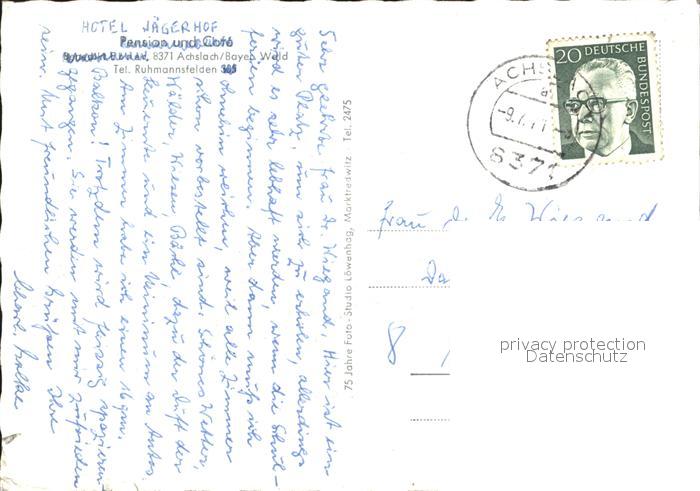 HOTEL JÄGERHOF
Pension und Café
8371 Achslach/Bayer. Wald
Tel. Ruhmannsfelden
Sehr geehrte Frau Dr. Wiegand, Hier ist ein
guter Platz, um sich zu erholen, allerdings
wird es sehr lebhaft werden, wenn die Schul-
ferien beginnen. Aber dann muß ich
ohnehin weichen, weil alle Zimmer
schon vorbestellt sind. Schönes Wetter,
Wälder, Wiesen, Bäche, dazu der Duft der
und ein Minimum an Autos.
Am Zimmer habe ich einen 16 qm.
Balkon! Trotzdem wird fleissig spazieren
gegangen. Sie werden mit mir zufrieden
sein. Mit freundlichen Grüßen Ihre
75 Jahre Foto-Studio Löwenhag, Marktredwitz Tel. 2475
20 DEUTSCHE BUNDESPOST
ACHSLACH
8371
Frau Dr. E. Wiegand
8
privacy protection
Datenschutz